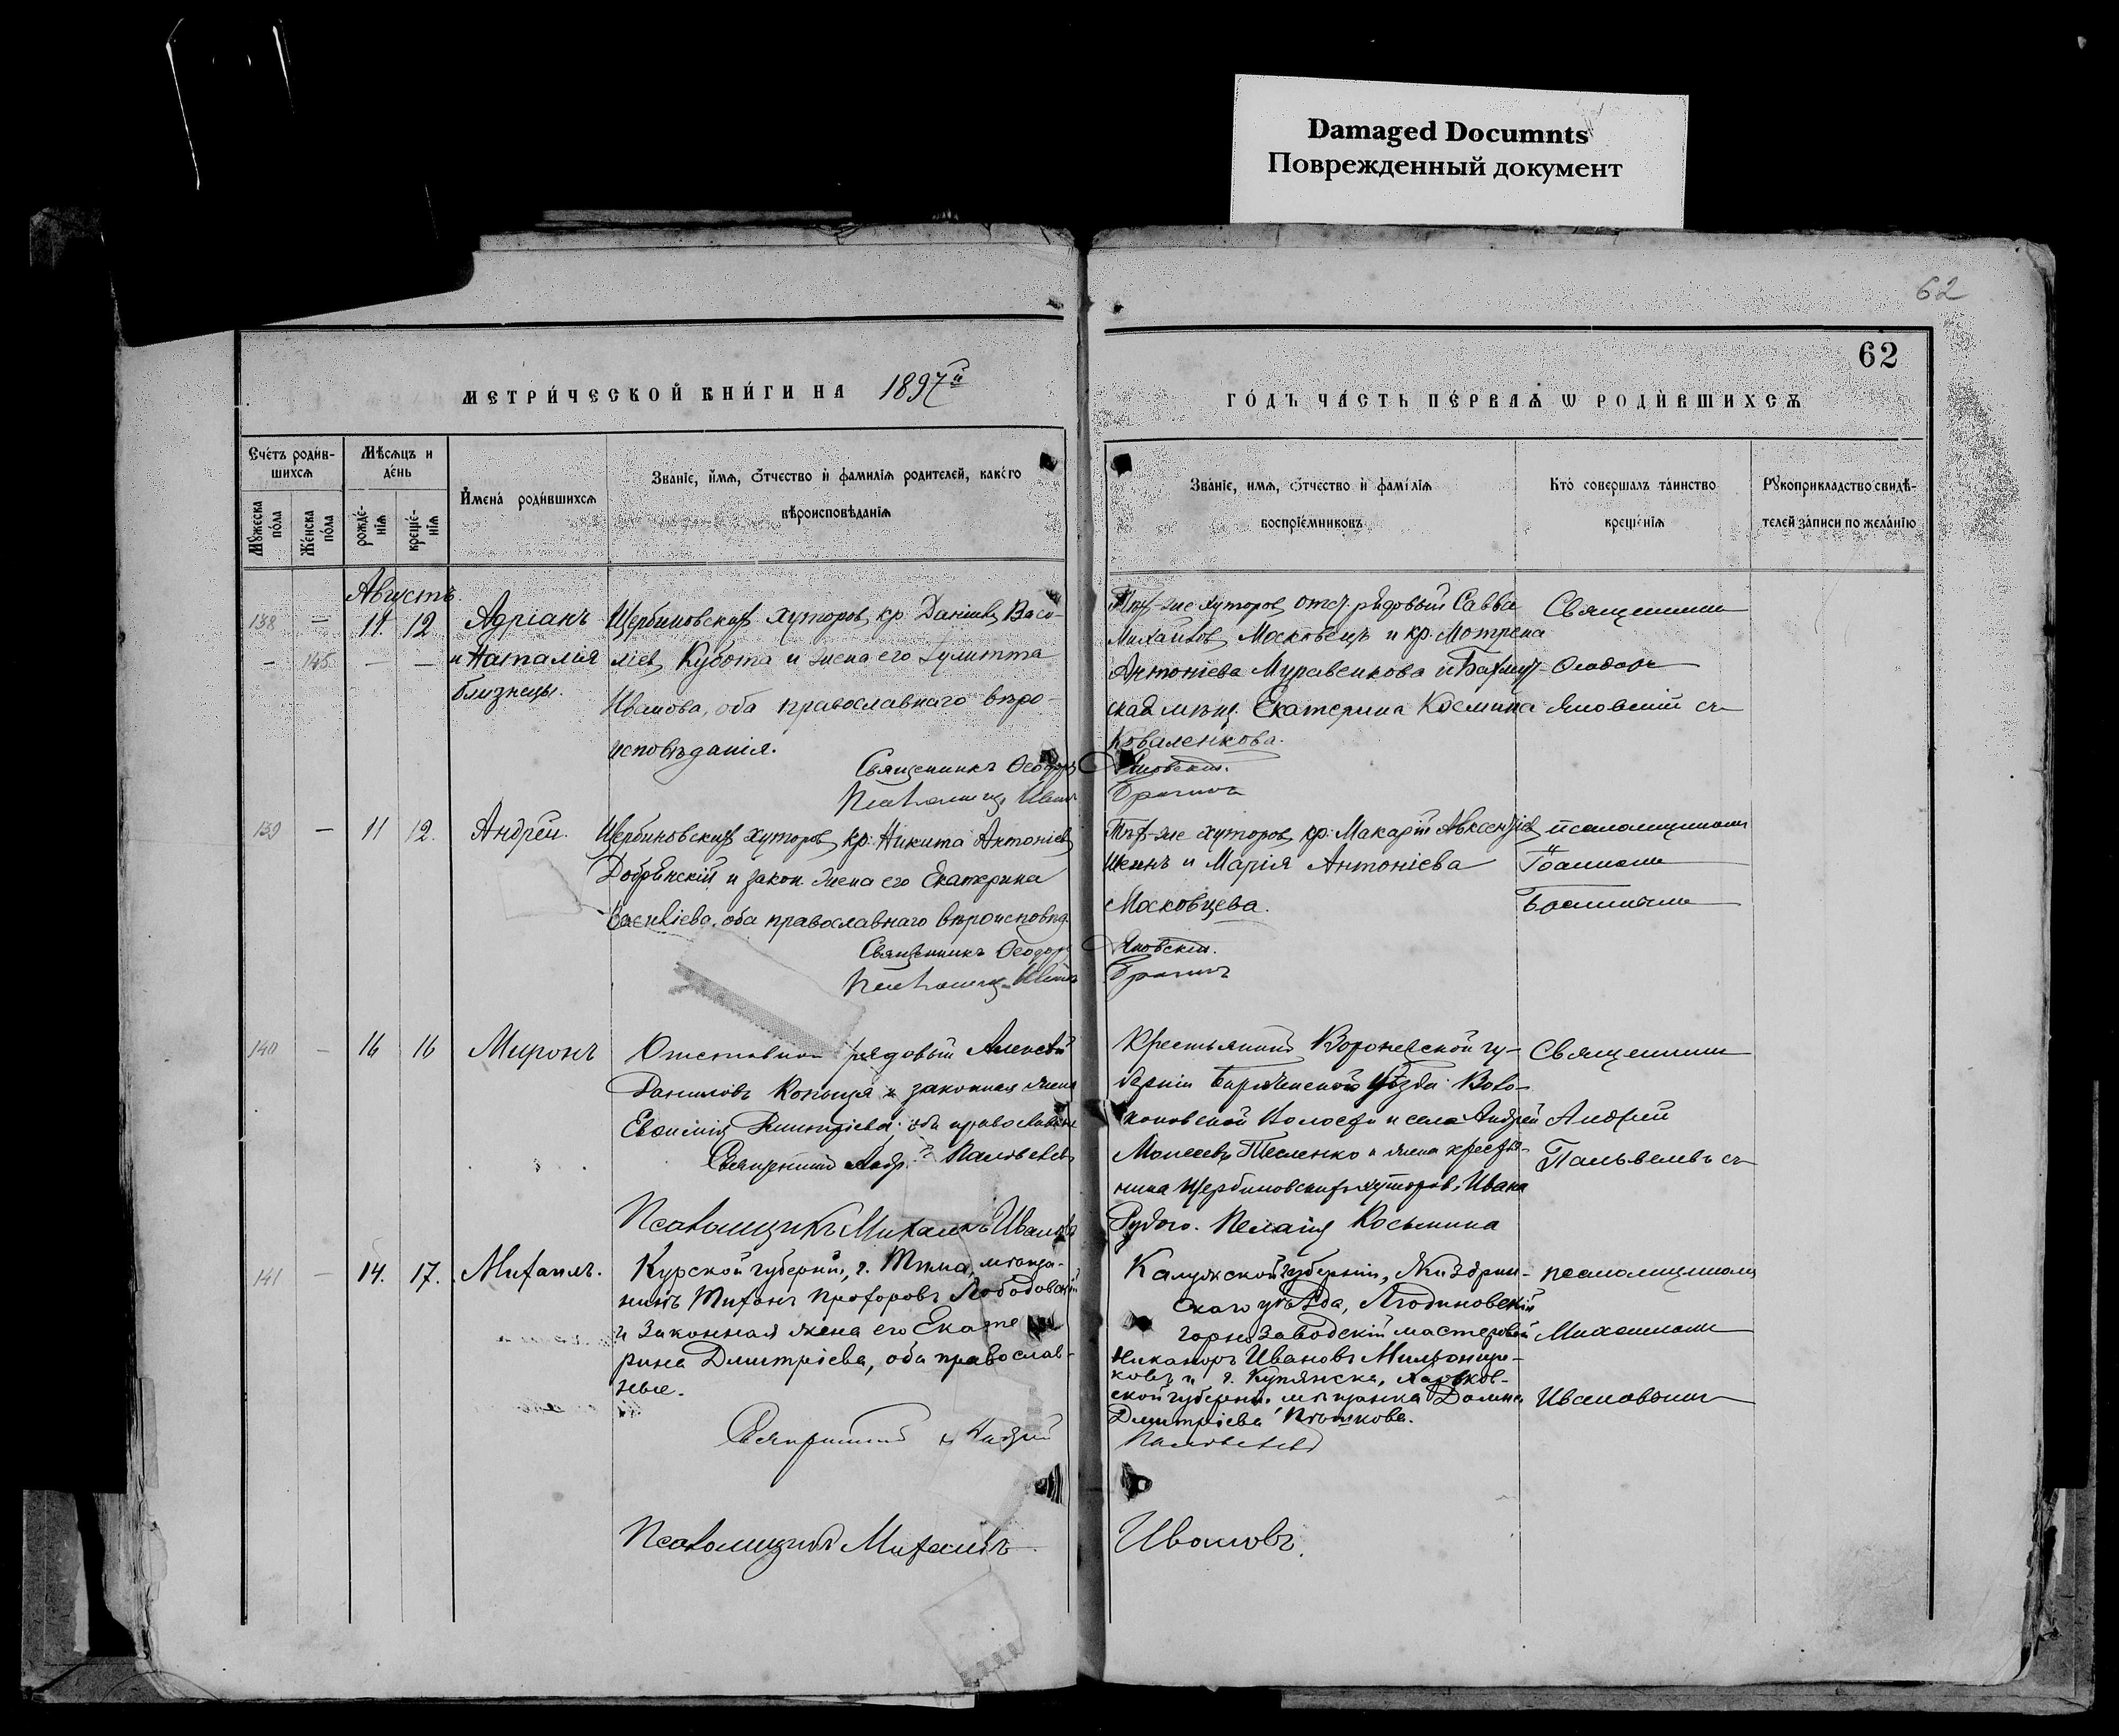 Damaged Documnts
Поврежденный документ
62
62
МЕТРИ́ЧЕСКОЙ КНИ́ГИ НА 1897й
ГО́ДЪ ЧА́СТЬ ПЕ́РВАѦ Ѡ РОДИ́ВШИХСѦ
Счетъ роди́в-
шихсѧ
Мѣсѧцъ и
де́нь
Мꙋжеска
по́ла
Же́нска
по́ла
рожде́-
нїѧ
креще́-
нїѧ
Имена̀ роди́вшихсѧ
Званїе, и́мѧ, ѻ́тчество и̂ фамилїѧ родителей, како́го
вѣроисповѣданїѧ
Званїе, имѧ, ѻ́тчество и̂ фамілїѧ
воспрїе́мниковъ
Кто̀ совершалъ та́инство
креще́нїѧ
Рꙋкоприкладство свидѣ-
телей за́писи по жела́нїю
Августъ
138 — 11. 12 Адріанъ
— 145 — — и Наталія
близнецы.
Щербиновскихъ хуторовъ кр. Даніилъ Васи-
ліевъ Кубота и жена его Іулитта
Иванова, оба православнаго вѣро-
исповѣданія.
Священникъ Ѳеодоръ Яновскій.
Тѣхъ-же хуторовъ отст. рядовый Савва
Михайловъ Московецъ и кр. Мотрена
Антоніева Муравенкова и Бахмут-
ская мѣщ. Екатерина Космина
Коваленкова.
Священникъ
Ѳеодоръ
Яновскій съ
139 — 11 12. Андрей.
Щербиновскихъ хуторовъ кр. Никита Антоніевъ
Добрянскій и закон. жена его Екатерина
Василіева, оба православнаго вѣроисповѣд.
Священникъ Ѳеодоръ Яновскій.
Тѣхъ-же хуторовъ кр. Макарій Авксентіевъ
и Марія Антоніева
Московцева.
псаломщикомъ
Іоанномъ
140 — 16 16 Миронъ
Отставной рядовый Алексѣй
Даниловъ Копыця и законная жена
Евѳимія Димитріева оба православные
Псаломщикъ Михаилъ Ивановъ
Крестьянинъ Воронежской гу-
берніи Бирюченскаго уѣзда Воло-
коновской Волости и села Андрей
Моисеевъ Тесленко и жена крестья-
нина Щербиновскихъ хуторовъ Ивана
Рудого. Пелагія Косьмина
Священникъ
Андрей
141 — 14. 17. Михаилъ.
Курской губерніи, г. Тима, мѣща-
нинъ Тихонъ Прохоровъ Лободовскій
и законная жена его Екате
рина Дмитріева, оба православ-
ные.
Священникъ Андрей
Псаломщикъ Михаилъ Ивановъ.
Калужской губерніи, Жиздрин-
скаго уѣзда, Людиновскій
горно заводскій мастеровой
Никаноръ Ивановъ
ковъ и г. Купянска, Харьков-
ской губерніи, мѣщанка Домна
Дмитріева
псаломщикомъ
Михаиломъ
Ивановымъ